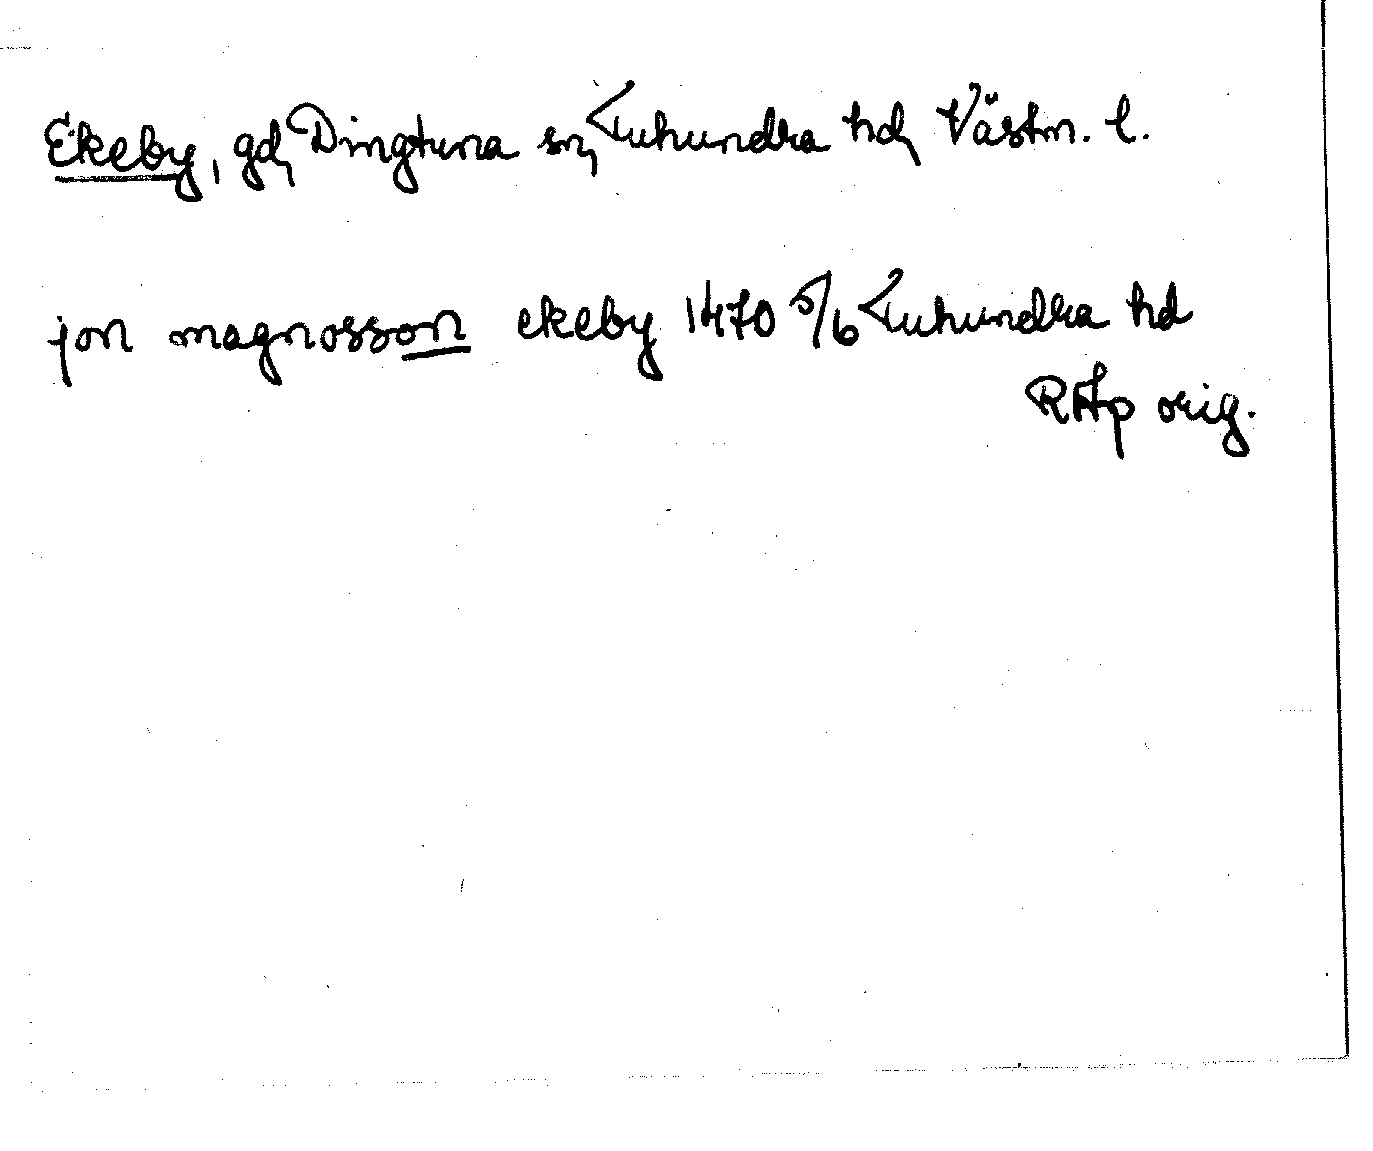 Ekeby, gd, Dingtuna sn, Tuhundra hd, Västm. l.
jon magnosson ekeby 1470 5/6 Tuhundra hd
RAp orig.